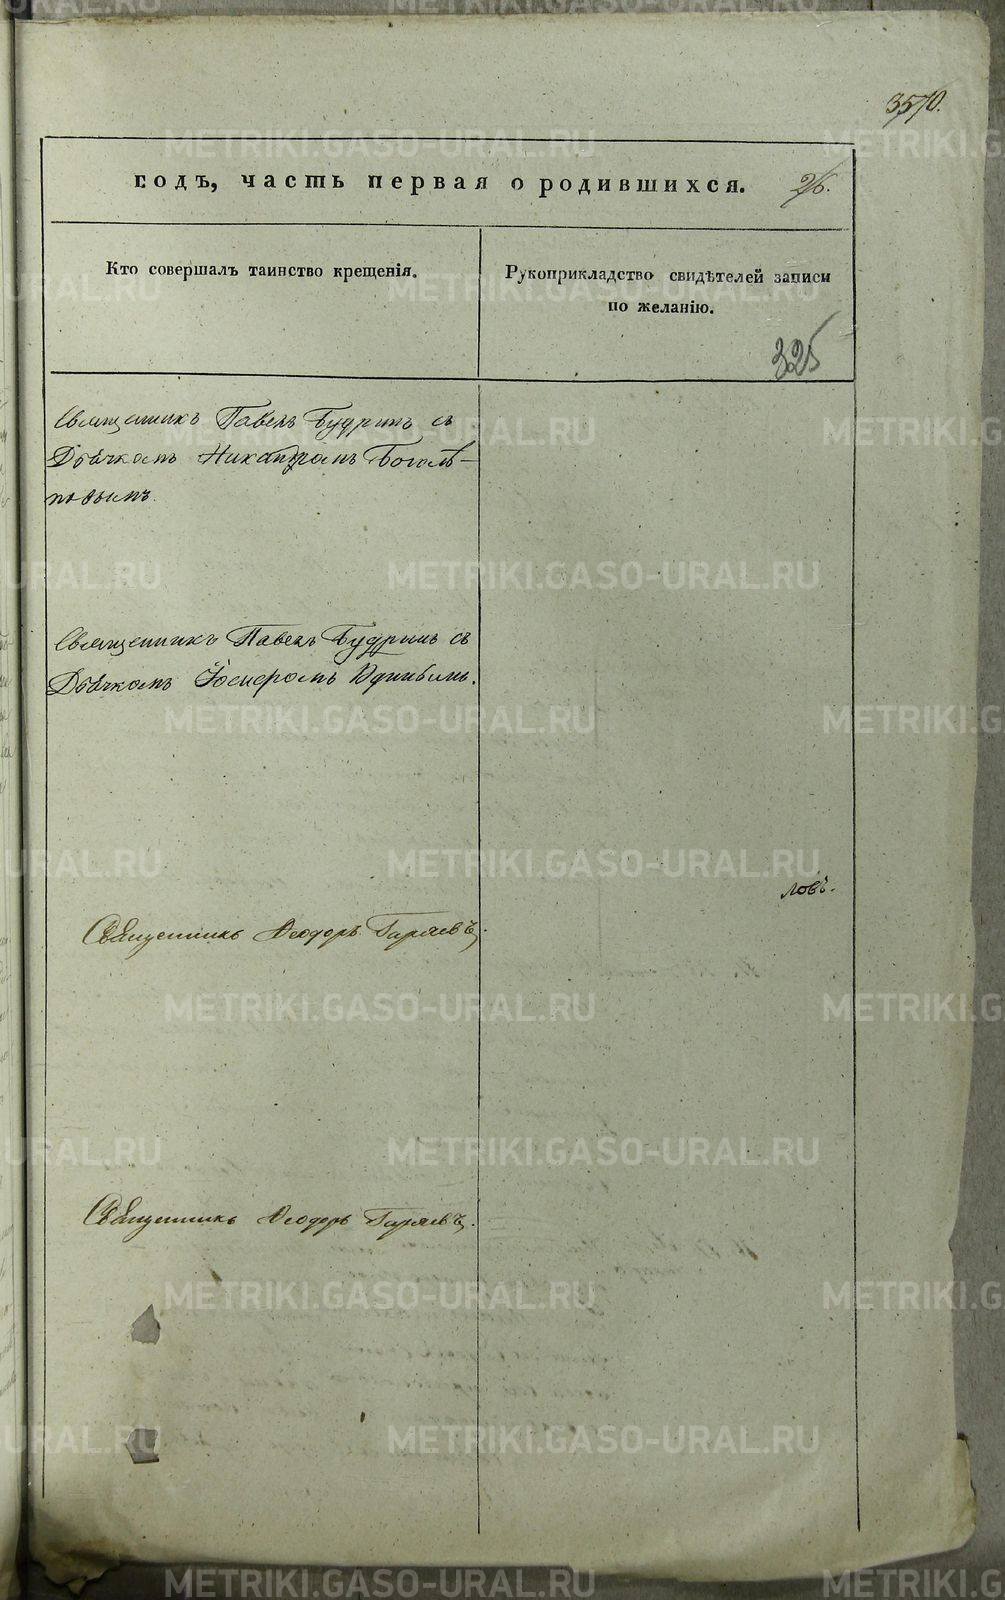 3570.
годъ, часть первая о родившихся. 26.
Кто совершалъ таинство крещенія.
Рукоприкладство свидѣтелей записи
по желанію.
325
Священникъ Павелъ Будринъ съ
Дьячкомъ Никандромъ Боголѣ-
повымъ.
Священникъ Павелъ Будринъ съ
Дьячкомъ
ловъ.
Священникъ Ѳеодоръ Гаряевъ.
Священникъ Ѳеодоръ Гаряевъ.
METRIKI.GASO-URAL.RU